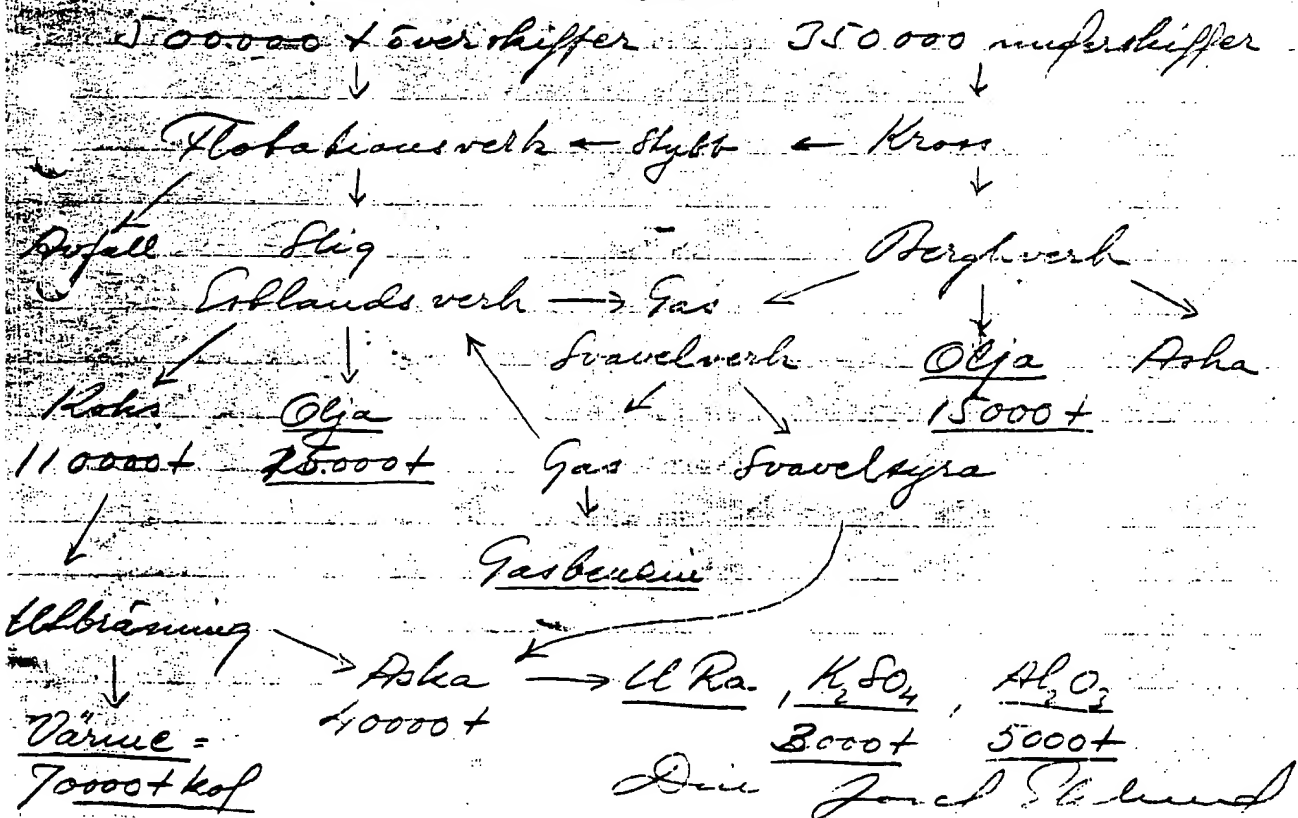 500.000 t överskiffer 350000 underskiffer
Flotationsverk ← Stybb ← Kross
Avfall Slig Berghverk
Estlandsverk → Gas
Svavelverk Olja Aska
Koks Olja 15000 t
110000 t 25.000 t Gas Svavelsyra
Gasbensin
Utbränning
Aska → U Ra, K₂SO₄, Al₂O₃
40000 t
Värme = 3000 t 5000 t
70000 t kol Din